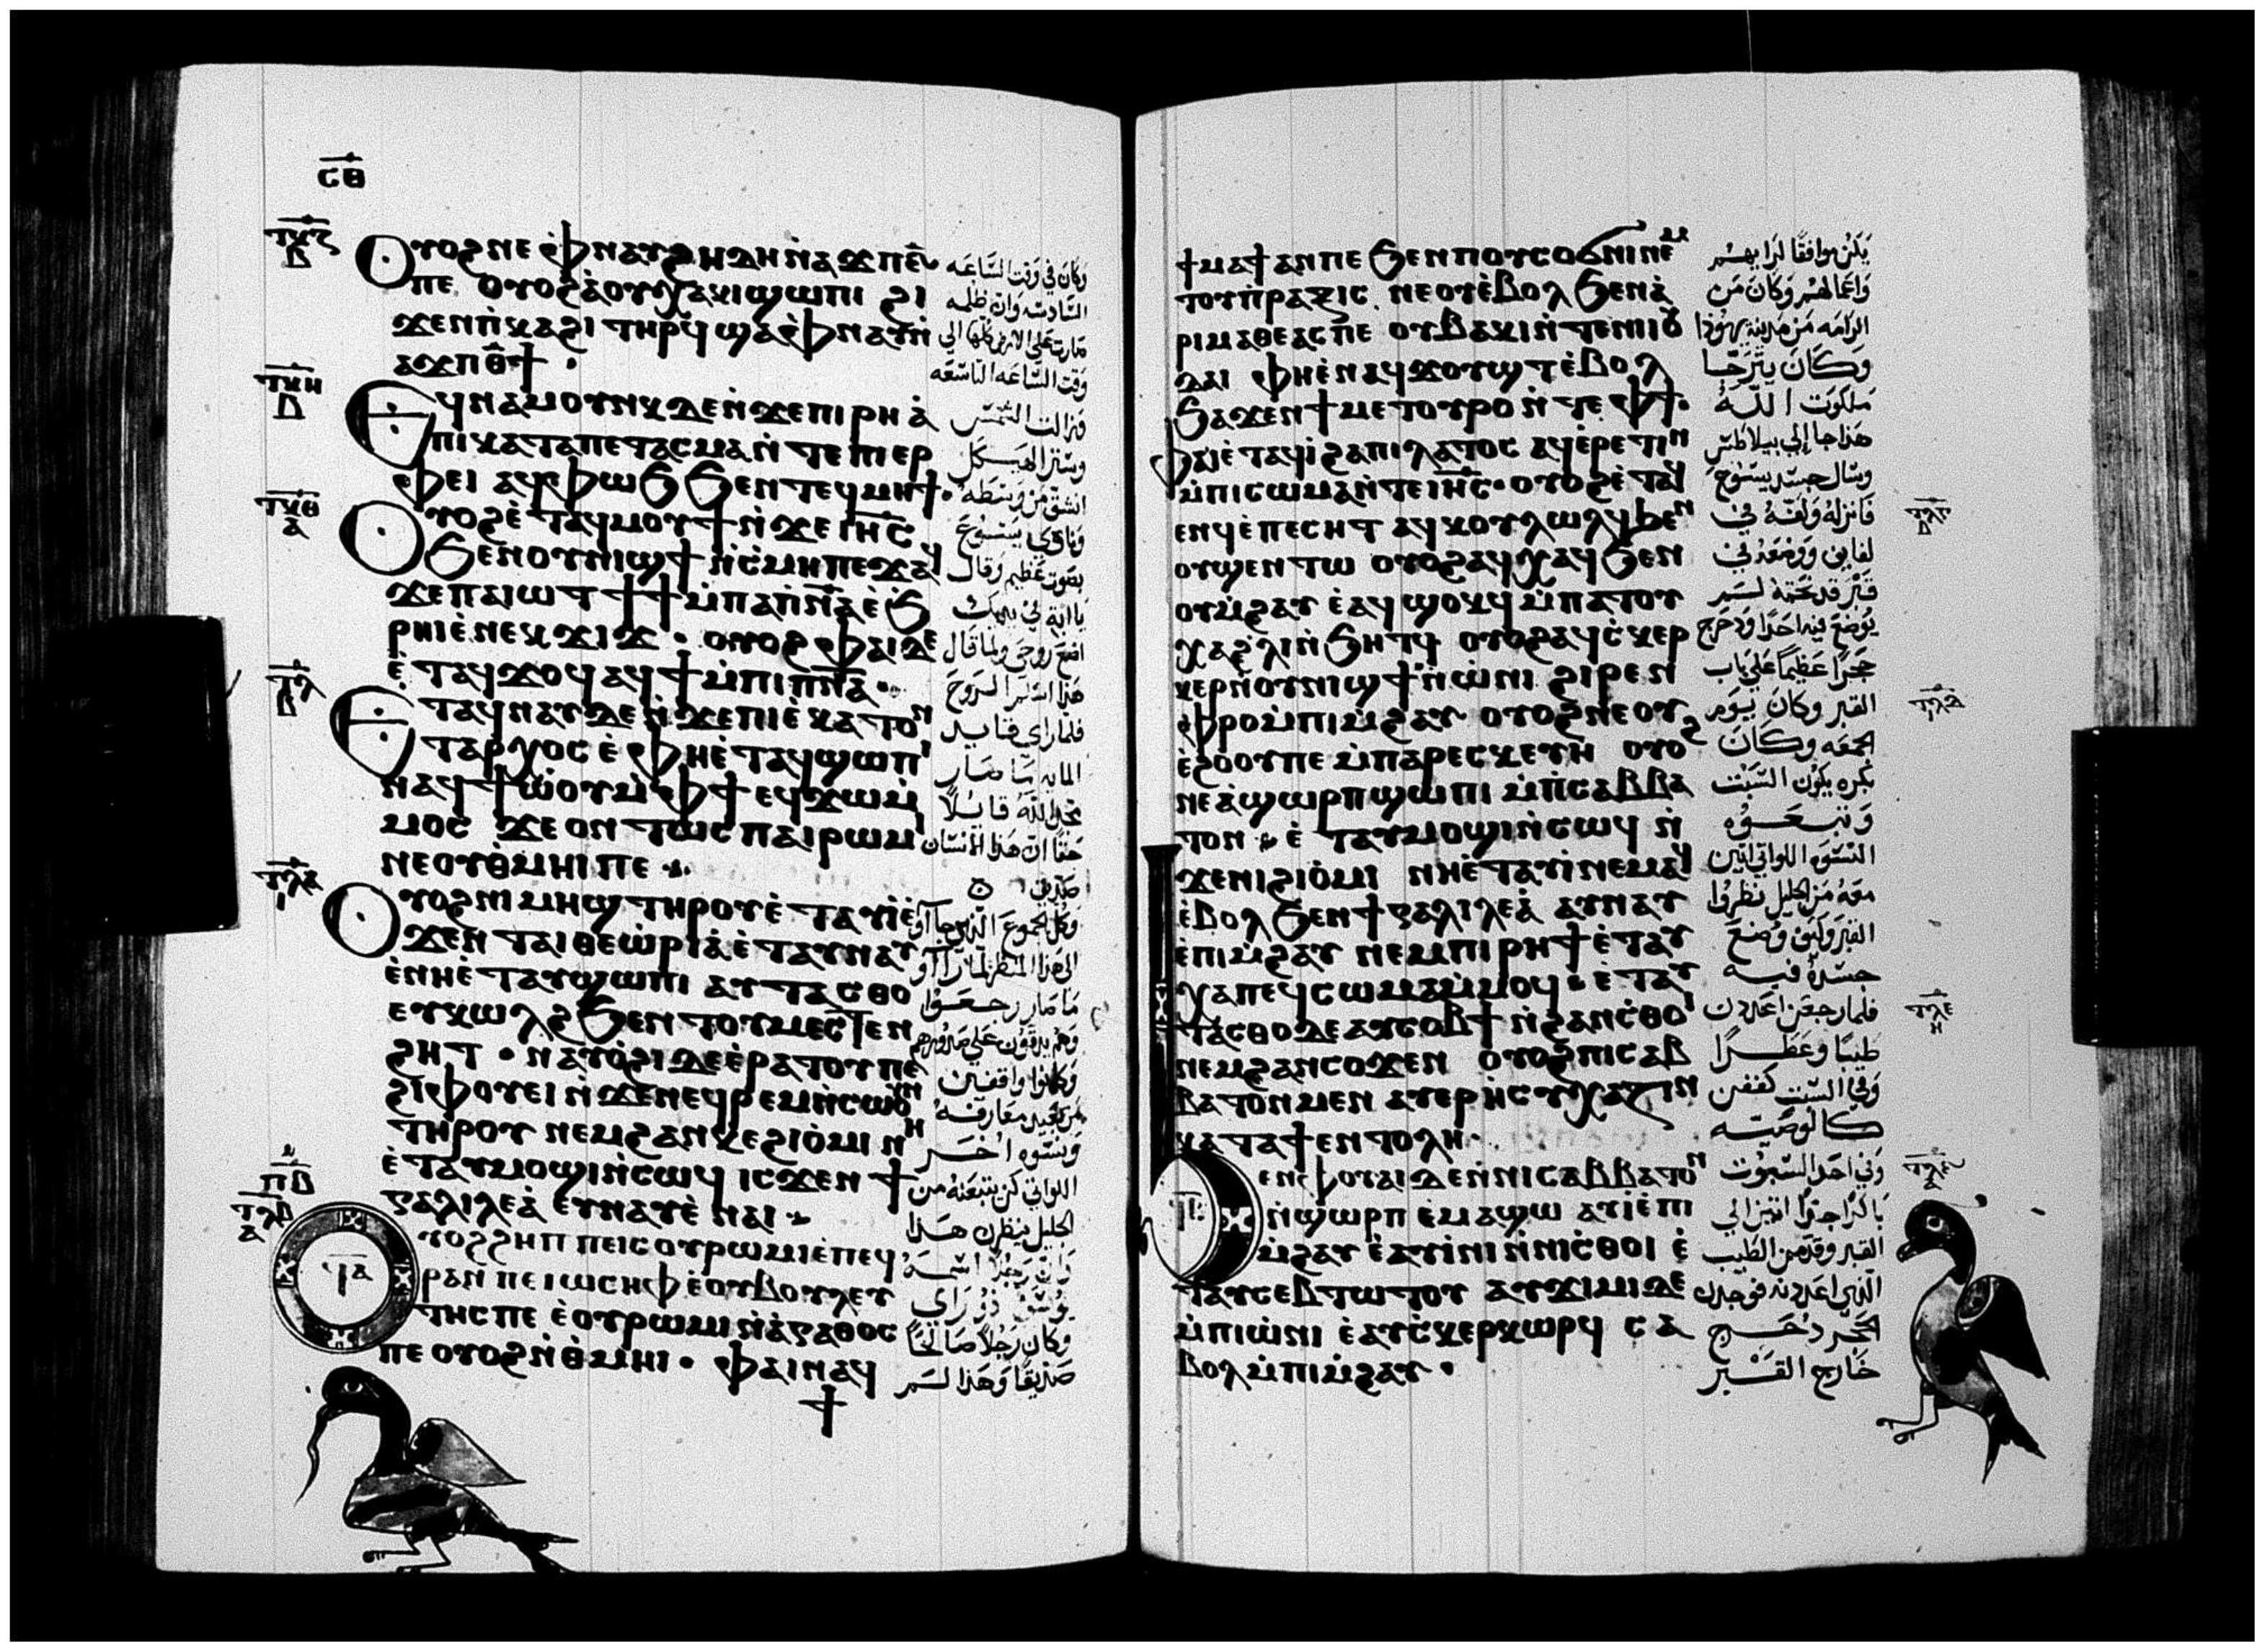 ⲥ̅ⲑ̅
ⲧⲕⲍ
ⲃ
ⲟⲩⲟϩ ⲛⲉ ⲫⲛⲁⲩ ϩⲏⲇⲏ ⲛ̀ⲁϫⲡ ⲋ̅
ⲡⲉ ⲟⲩⲟϩ ⲁ̀ⲟⲩⲭⲁⲕⲓ ϣⲱⲡⲓ ϩⲓ
ϫⲉⲛ ⲡ̀ⲕⲁϩⲓ ⲧⲏⲣϥ ϣⲁ ⲫⲛⲁⲩ ⲛ̀
ⲁϫⲡ ⲑ̅ϯ ·
ⲧⲕⲏ
ⲃ
ⲉϥⲛⲁⲙⲟⲩⲛⲕ ⲇⲉ ⲛ̀ϫⲉ ⲡⲓⲣⲏ ⲁ̀
ⲡⲓⲕⲁⲧⲁⲡⲉⲧⲁⲥⲙⲁ ⲛ̀ⲧⲉ ⲡⲓⲉⲣ
ⲫⲉⲓ ⲁϥⲫⲱϧ ϧⲉⲛ ⲧⲉϥⲙⲏϯ ·
ⲧⲕⲑ
ⲁ
ⲟⲩⲟϩ ⲉ̀ⲧⲁϥⲙⲟⲩϯ ⲛ̀ϫⲉ ⲓⲏ̅ⲥ̅
ϧⲉⲛ ⲟⲩⲛⲓϣϯ ⲛ̀ⲥ̀ⲙⲏ ⲡⲉϫⲁϥ
ϫⲉ ⲡⲁⲓⲱⲧ ϯϯ ⲙ̀ⲡⲁⲡ̅ⲛ̅ⲁ̅ ⲉ̀ϧ
ⲣⲏⲓ ⲉ̀ⲛⲉⲕϫⲓϫ · ⲟⲩⲟϩ ⲫⲁⲓ ⲇⲉ
ⲉ̀ⲧⲁϥϫⲟϥ ⲁϥϯ ⲙ̀ⲡⲓⲡ̅ⲛ̅ⲁ̅ ·
ⲧⲗ
ⲃ
ⲉⲧⲁϥⲛⲁⲩ ⲇⲉ ⲛ̀ϫⲉ ⲡⲓⲉ̀ⲕⲁⲧⲟⲛ
ⲧⲁⲣⲭⲟⲥ ⲉ̀ⲫⲏ ⲉ̀ⲧⲁϥϣⲱⲡⲓ
ⲛⲁϥϯⲱ̀ⲟⲩ ⲙ̀ⲫϯ ⲉϥϫⲱ ⲙ̀
ⲙⲟⲥ ϫⲉ ⲟⲛⲧⲱⲥ ⲡⲁⲓⲣⲱⲙⲓ
ⲛⲉ ⲟⲩⲑ̀ⲙⲏⲓ ⲡⲉ
ⲧⲗⲁ
ⲓ
ⲟⲩⲟϩ ⲛⲓⲙⲏϣ ⲧⲏⲣⲟⲩ ⲉ̀ⲧⲁⲩⲓ̀ ⲉ̀
ϫⲉⲛ ⲧⲁⲓⲑⲉⲱ̀ⲣⲓⲁ̀ ⲉ̀ⲧⲁⲩⲛⲁⲩ
ⲉ̀ⲛⲏ ⲉ̀ⲧⲁⲩϣⲱⲡⲓ ⲁⲩⲧⲁⲥⲑⲟ
ⲉⲩⲕⲱⲗϩ ϧⲉⲛ ⲧⲟⲩⲙⲉⲥⲧⲉⲛ
ϩⲏⲧ · ⲛⲁⲩⲟ̀ϩⲓ ⲇⲉ ⲉ̀ⲣⲁⲧⲟⲩ ⲡⲉ
ϩⲓⲫⲟⲩⲉⲓ ⲛ̀ϫⲉ ⲛⲉϥⲣⲉⲙⲛ̀ⲥⲱⲟⲩⲛ
ⲧⲏⲣⲟⲩ ⲛⲉⲙ ϩⲁⲛⲕⲉϩⲓⲟ̀ⲙⲓ ⲛⲏ
ⲉ̀ⲧⲁⲩⲙⲟϣⲓ ⲛ̀ⲥⲱϥ ⲓⲥϫⲉⲛ ϯ
ⲅⲁⲗⲓⲗⲉⲁ̀ ⲉⲩⲛⲁⲩ ⲉ̀ⲛⲁⲓ
ⲡⲃ
ⲧⲗⲃ
ⲁ
ϥⲁ
ⲟⲩⲟϩ ϩⲏⲡⲡⲉ ⲓⲥ ⲟⲩⲣⲱⲙⲓ ⲉ̀ⲡⲉϥ
ⲣⲁⲛ ⲡⲉ ⲓⲱⲥⲏⲫ ⲉ̀ⲟⲩⲃⲟⲩⲗⲉⲩ
ⲧⲏⲥ ⲡⲉ ⲉ̀ⲟⲩⲣⲱⲙⲓ ⲛ̀ⲁ̀ⲅⲁⲑⲟⲥ
ⲡⲉ ⲟⲩⲟϩ ⲛ̀ⲑ̀ⲙⲏⲓ · ⲫⲁⲓ ⲛⲁϥ
ϯ
وكان في وقت الساعه
السادسه وان ظلمه
صارت على الارض كلها الي
وقت الساعه التاسعه
فزالت الشمس
وستر الهيكل
انشق من وسطه
ونادى يسوع
بصوت عظيم وقال
يا ابة في يديك
اضع روحى ولما قال
هذا اسلم الروح
فلما راى قايد
المايه ما صار
مجد الله قايلا
حقا ان هذا الانسان
صديق
وكل الجموع الذين جاآوا
الى هذا المنظر لما راآوا
ما صار رجعوا
وهم يدقون على صدورهم
وكانوا واقفين
من بعيد معارفه
ونسوه اخر
اللواتي كن يتبعنه من
الجليل ينظرن هذا
وان رجلا اسمه
يوسف ذو راي
وكان رجلا صالحا
صديقا وهذا لم
ϯⲙⲁϯ ⲁⲛ ⲡⲉ ϧⲉⲛ ⲡⲟⲩⲥⲟϭⲛⲓ ⲛⲉⲙ
ⲧⲟⲩⲡ̀ⲣⲁⲝⲓⲥ ⲛⲉ ⲟⲩⲉ̀ⲃⲟⲗ ϧⲉⲛ ⲁ̀
ⲣⲓⲙⲁⲑⲉⲁⲥ ⲡⲉ ⲟⲩⲃⲁⲕⲓ ⲛ̀ⲧⲉ ⲛⲓⲓⲟⲩ
ⲇⲁⲓ ⲫⲏ ⲉ̀ⲛⲁϥϫⲟⲩϣⲧ ⲉ̀ⲃⲟⲗ
ϧⲁϫⲉⲛ ϯⲙⲉⲧⲟⲩⲣⲟ ⲛ̀ⲧⲉ ⲫϯ ·
ⲫⲁⲓ ⲉ̀ⲧⲁϥⲓ̀ ϩⲁ ⲡⲓⲗⲁⲧⲟⲥ ⲁϥⲉⲣⲉⲧⲓⲛ
ⲙ̀ⲡⲓⲥⲱⲙⲁ ⲛ̀ⲧⲉ ⲓⲏ̅ⲥ̅ · ⲟⲩⲟϩ ⲉ̀ⲧⲁϥ
ⲉⲛϥ ⲉ̀ⲡⲉⲥⲏⲧ ⲁϥⲕⲟⲩⲗⲱⲗϥ ϧⲉⲛ
ⲟⲩϣⲉⲛⲧⲱ ⲟⲩⲟϩ ⲁϥⲭⲁϥ ϧⲉⲛ
ⲟⲩⲙ̀ϩⲁⲩ ⲉ̀ⲁϥϣⲟⲕϥ ⲙ̀ⲡⲁⲧⲟⲩ
ⲭⲁ ϩ̀ⲗⲓ ⲛ̀ϧⲏⲧϥ ⲟⲩⲟϩ ⲁϥⲥ̀ⲕⲉⲣ
ⲕⲉⲣ ⲛ̀ⲟⲩⲛⲓϣϯ ⲛ̀ⲱ̀ⲛⲓ ϩⲓⲣⲉⲛ
ⲫⲣⲟ ⲙ̀ⲡⲓⲙ̀ϩⲁⲩ ⲟⲩⲟϩ ⲛⲉ ⲟⲩ
ⲉ̀ϩⲟⲟⲩ ⲡⲉ ⲙ̀ⲡⲁⲣⲉⲥⲕⲉⲩⲏ ⲟⲩⲟϩ
ⲛⲉ ⲁ̀ϣⲱⲣⲡ ϣⲱⲡⲓ ⲙ̀ⲡ̀ⲥⲁⲃⲃⲁ
ⲧⲟⲛ ⲉ̀ⲧⲁⲩⲙⲟϣⲓ ⲛ̀ⲥⲱϥ ⲛ̀
ϫⲉ ⲛⲓϩⲓⲟ̀ⲙⲓ ⲛⲏ ⲉ̀ⲧⲁⲩⲓ̀ ⲛⲉⲙⲁϥ
ⲉ̀ⲃⲟⲗ ϧⲉⲛ ϯⲅⲁⲗⲓⲗⲉⲁ̀ ⲁⲩⲛⲁⲩ
ⲉ̀ⲡⲓⲙ̀ϩⲁⲩ ⲛⲉⲙ ⲡⲓⲣⲏϯ ⲉ̀ⲧⲁⲩ
ⲭⲁ ⲡⲉϥⲥⲱⲙⲁ ⲙ̀ⲙⲟϥ ⲉ̀ⲧⲁⲩ
ⲧⲁⲥⲑⲟ ⲇⲉ ⲁⲩⲥⲟⲃϯ ⲛ̀ϩⲁⲛⲥ̀ⲑⲟⲓ
ⲛⲉⲙ ϩⲁⲛⲥⲟϫⲉⲛ ⲟⲩⲟϩ ⲡⲓⲥⲁⲃ
ⲃⲁⲧⲟⲛ ⲙⲉⲛ ⲁⲩⲉⲣⲏ̀ⲥⲩⲭⲁⲍⲓⲛ
ⲕⲁⲧⲁ ϯⲉⲛⲧⲟⲗⲏ ·
ϧⲉⲛ ⲫⲟⲩⲁⲓ ⲇⲉ ⲛ̀ⲛⲓⲥⲁⲃⲃⲁⲧⲟⲛ
ⲛ̀ϣⲱⲣⲡ ⲉ̀ⲙⲁϣⲱ ⲁⲩⲓ̀ ⲉ̀ⲡⲓ
ⲙ̀ϩⲁⲩ ⲉ̀ⲁⲩⲓ̀ⲛⲓ ⲛ̀ⲛⲓⲥ̀ⲑⲟⲓ ⲉ̀
ⲧⲁⲩⲥⲉⲃⲧⲱⲧⲟⲩ ⲁⲩϫⲓⲙⲓ ⲇⲉ
ⲙ̀ⲡⲓⲱ̀ⲛⲓ ⲉ̀ⲁⲩⲥ̀ⲕⲉⲣⲕⲱⲣϥ ⲥⲁ
ⲃⲟⲗ ⲙ̀ⲡⲓⲙ̀ϩⲁⲩ ·
يكن موافقا لرايهم
واعمالهم وكان من
الرامه من مدينة يهوذا
وكان يترجا
ملكوت الله
هذا جا إلي بيلاطس
وسال جسد يسوع
فانزله ولفه في
لفايف ووضعه في
قبر قد نحته لم
يوضع فيه احدا ودحرج
حجرا عظيما علي باب
القبر وكان يوم
الجمعه وكان
بكره يكون السبت
وتبعوه
النسوه اللواتي اتين
معه من الجليل نظروا
القبر وكيف وضع
جسده فيه
فلما رجعن اعددن
طيبا وعطرا
وفي السبت كففن
كالوصيه
وفي احد السبوت
باكرا جدا اتين الي
القبر وقدمن الطيب
الذي اعددنه فوجدن
الحجر دحرج
خارج القبر
ⲧⲗⲅ
ⲧⲗⲇ
ⲓ
ⲧⲗⲉ
ⲏ